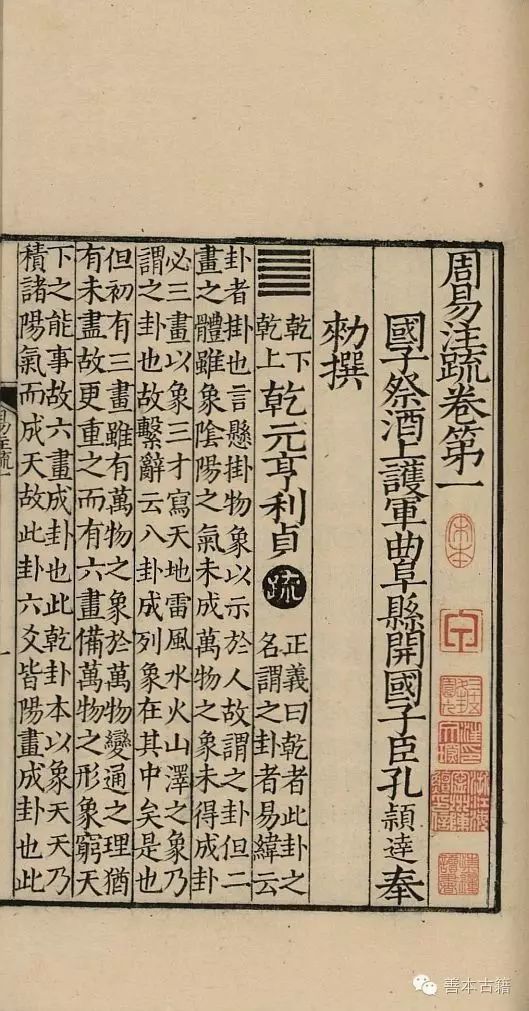 周易注疏卷第一
國子祭酒上護軍曲阜縣開國子臣孔穎達奉
勑撰
乾下
乾上
乾元亨利貞
疏
正義曰乾者此卦之
名謂之卦者易緯云
卦者掛也言懸掛物象以示於人故謂之卦但二
畫之體雖象陰陽之氣未成萬物之象未得成卦
必三畫以象三才寫天地雷風水火山澤之象乃
謂之卦也故繫辭云八卦成列象在其中矣是也
但初有三畫雖有萬物之象於萬物變通之理猶
有未盡故更重之而有六畫備萬物之形象窮天
下之能事故六畫成卦也此乾卦本以象天天乃
積諸陽氣而成天故此卦六爻皆陽畫成卦也此
一
宋本
善本古籍